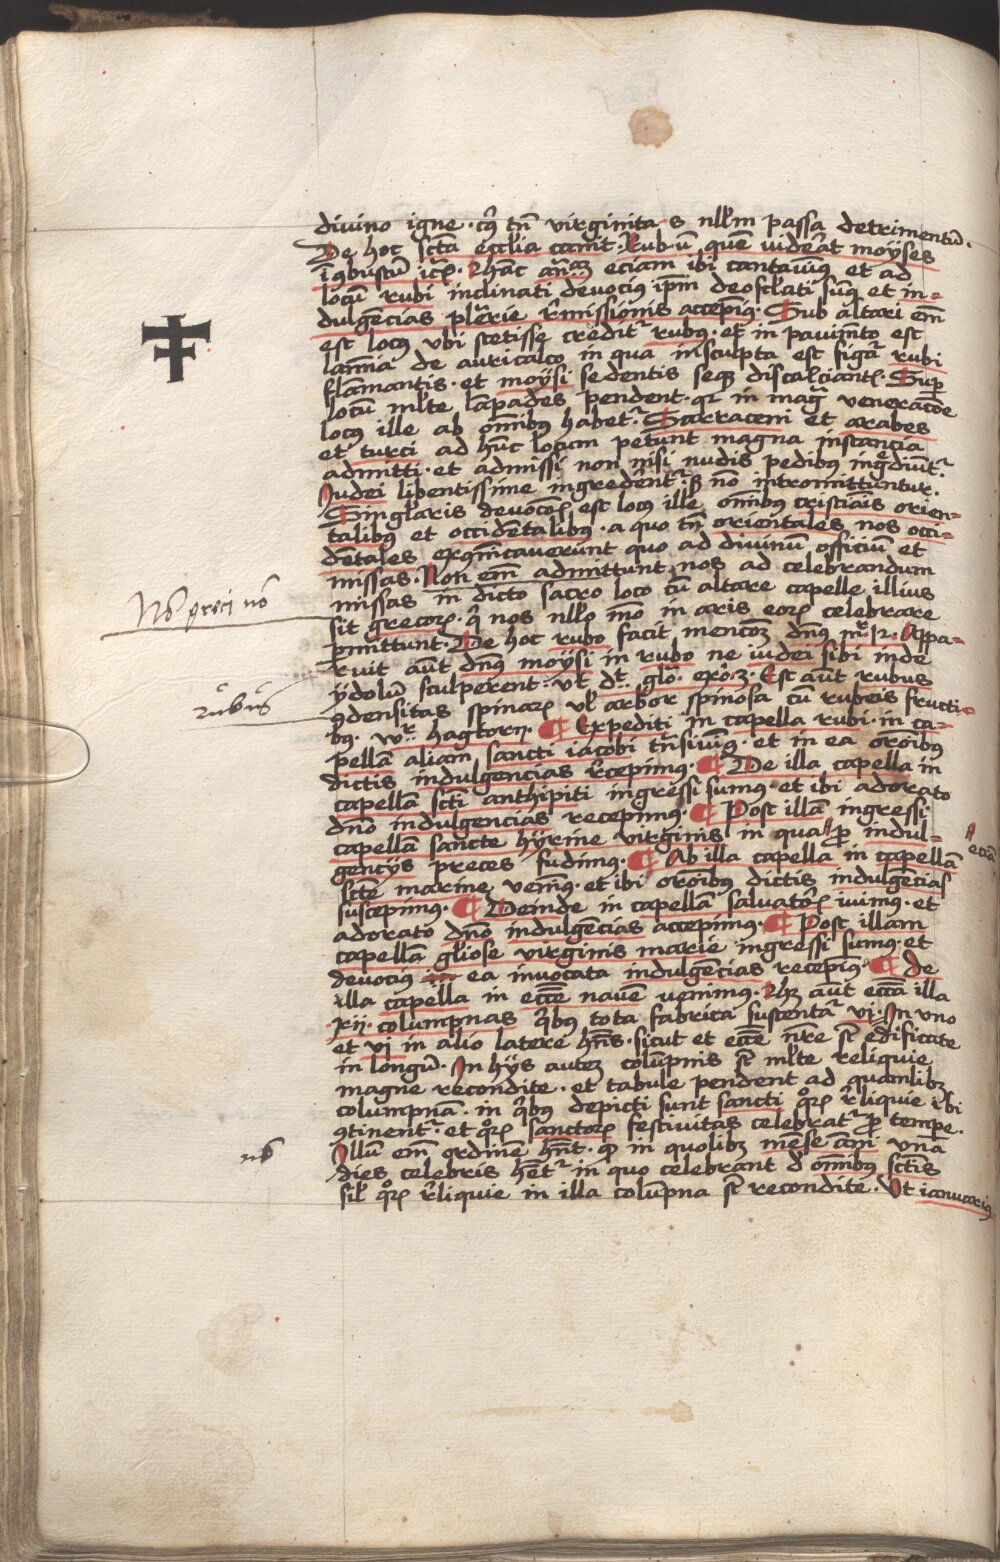 divino igne · cuiꝰ tn̄ virginitas nll̄m passa detrimentū ·
De hoc sctā ecclīa canit · Rubū quē vid̄erat moyses
īcōbustū ·
locū rubi inclinati devocius ip̄m deosclati sumꝰ et in=
dulgēcias plēnarie r̄missionis accepimꝰ · Sub altari em̄
est locꝰ vbi stetisse credit͛ rubꝰ · et in pavimēto est
lam̄ina de auricalco in qua insculpta est figura rubi
flāmantis · et moysi sedentis seqꝫ discalciantꝭ · Sup̄
locū ml̄te lāpades pendent · qr in magͣ veneracōe
locꝰ ille ab om̄nibꝰ habet͛ · Sarraceni et arabes
et turci ad hūc locum petunt magna instancia
admitti · et admissi non nisi nudis pedibꝰ ingͬdiunt͛ ·
Judei libentissime ingredērent͛ sꝫ nō intromittuntur ·
Singl̄aris devocōis est locꝰ ille om̄nibꝰ cristianis orien=
talibꝰ et occidētalibꝰ · a quo tn̄ orientales nos occi=
dētales exc̄om̄icaverunt quo ad divinū officiū et
missas · Non em̄ admittunt nos ad celebrandum
missas in dicto sacro loco cū altare capelle illius
Nō greci nō
sit grecorꝫ · qͥ nos nll̄o mō in aris eorꝫ celebrare
pmittunt · De hoc rubo facit mencōꝫ dn̄s mr̄ 12 · Appa=
ruit aūt dn̄s moysi in rubo ne iudei sibi inde
ydolū sculperent · vt dt̄ glō · exo · 3 · Est aūt rubus
rubus
ꝯdensitas spinarꝫ vl̄ arbor spinosa cū rubeis fructi=
bꝰ · wͬ hagtorn · ¶ Expediti in capella rubi · in ca=
pellā aliam sancti iacobi tn̄siviꝰ · et in ea orōibꝰ
dictis indulgencias r̄cepimꝰ · ¶ De illa capella in
capellā sctī anthipiti ingressi sumꝰ · et ibi adorato
dn̄o indulgencias recepimꝰ · ¶ Post illā ingressi
capellā sancte hyrine virginis in qua ꝓ indul=
eciā
gencÿs preces fudimꝰ · ¶ Ab illa capella in capellā
sctē marine venimꝰ · et ibi orōibꝰ dictis indulgēcias
suscepimꝰ · ¶ Deinde in capellā salvatorꝭ ivimus · et
adorato dn̄o indulgēcias accepimꝰ · ¶ Post illam
capellā gl̄iose virginis marie ingressi sumꝰ · et
devocius ea invocata indulgēcias recepimꝰ · ¶ De
illa capella in ecc̄e navē venimus · Hꝫ aūt ecc̄a illa
· xii · columpnas qͥbꝰ tota fabrica sustentat͛ vi · In vno
et vi in alio latere hn̄s · sicut et ecc̄e nr̄e st̄ edificate
in longū · In hÿs autem colūpnis st̄ ml̄te reliquie
magne recondite · et tabule pendent ad quamlibꝫ
columpnā · in qͥbꝰ depicti sunt sancti qͦrꝫ r̄liquie ibi
ꝯtinent͛ · et qͦrꝫ sanctorꝫ festivitas celebrat͛ ꝓ tempe ·
nō
Illū em̄ ordinē hn̄t · qꝫ in quolibꝫ mēse āni vn̄a
dies celebris hēt͛ in quo celebrant d̄ om̄nibꝰ sctīs
sil̄ qͦrꝫ r̄liquie in illa colūpna st̄ recondite · Vt ianuariꝰ